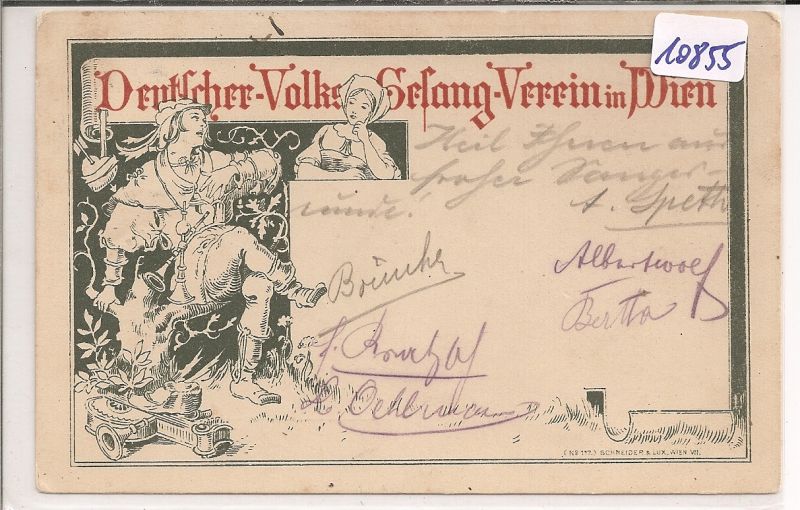 10855
Deutscher-Volks Gesang-Verein in Wien
Heil Ihnen aus
froher Sanges-
runde!
A. Speth
Albertwolf
Bertha
(No 117.) SCHNEIDER & LUX, WIEN VII.